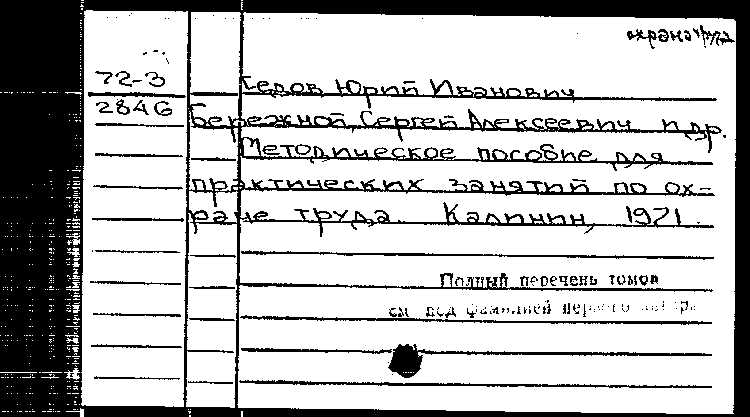 охрана труда
72-3
2846
Юрий Иванович
Бережной, Сергей Алексеевич и др.
Методическое пособие для
практических занятий по ох-
ране труда. Калинин, 1971.
Полный перечень томов
см под фамилией первого автора